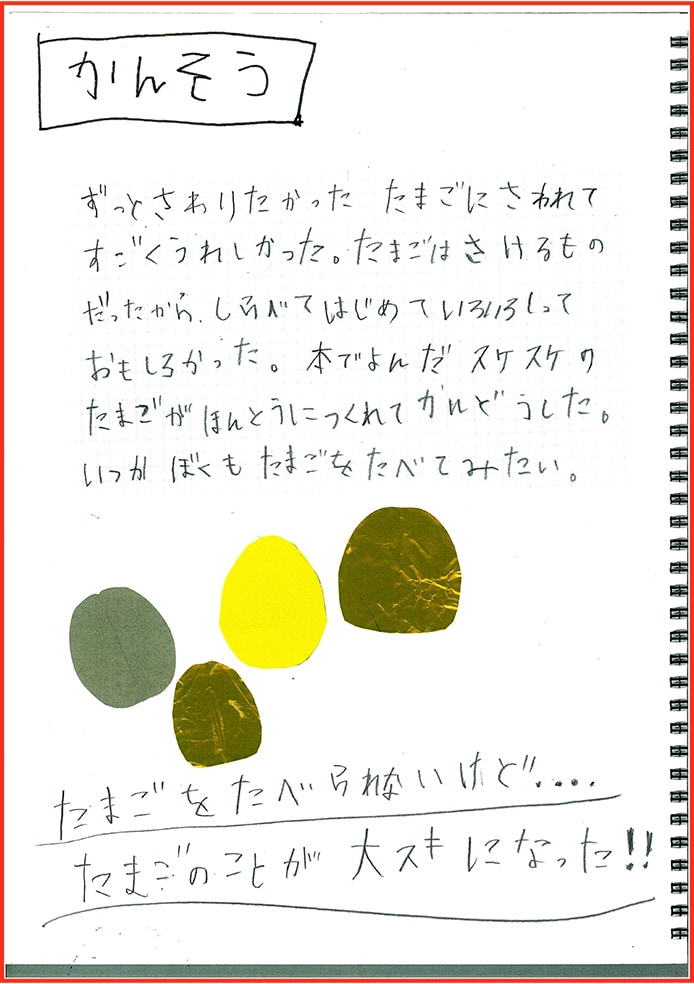 かんそう
ずっとさわりたかった たまごにさわれて
すごくうれしかった。たまごはさけるもの
だったから、しらべてはじめていろいろしって
おもしろかった。本でよんだ スケスケの
たまごがほんとうにつくれてかんどうした。
いつかぼくもたまごをたべてみたい。
たまごをたべられないけど....
たまごのことが大スキになった!!